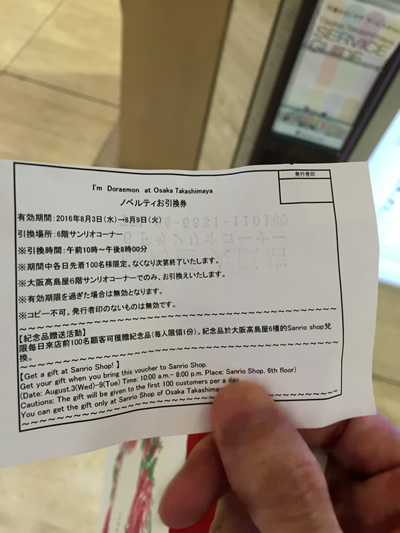 Osaka Takashimaya
SERVICE
GUIDE
発行者印
I'm Doraemon at Osaka Takashimaya
ノベルティお引換券
有効期間：2016年8月3日(水)→8月9日(火)
引換場所：6階サンリオコーナー
※引換時間：午前10時～午後8時00分
※期間中各日先着100名様限定。なくなり次第終了いたします。
※大阪高島屋6階サンリオコーナーでのみ、お引換えいたします。
※有効期限を過ぎた場合は無効となります。
※コピー不可。発行者印のないものは無効です。
【紀念品贈送活動】
限每日来店前100名顧客可獲贈紀念品(每人限領1份)。紀念品於大阪高島屋6樓的Sanrio shop兌
換。
【Get a gift at Sanrio Shop! 】
Get your gift when you bring this voucher to Sanrio Shop.
(Date: August.3(Wed)-9(Tue) Time: 10:00 a.m.- 8:00 p.m. Place: Sanrio Shop, 6th floor)
Cautions: The gift will be given to the first 100 customers per a day.
You can get the gift only at Sanrio Shop of Osaka Takashimay